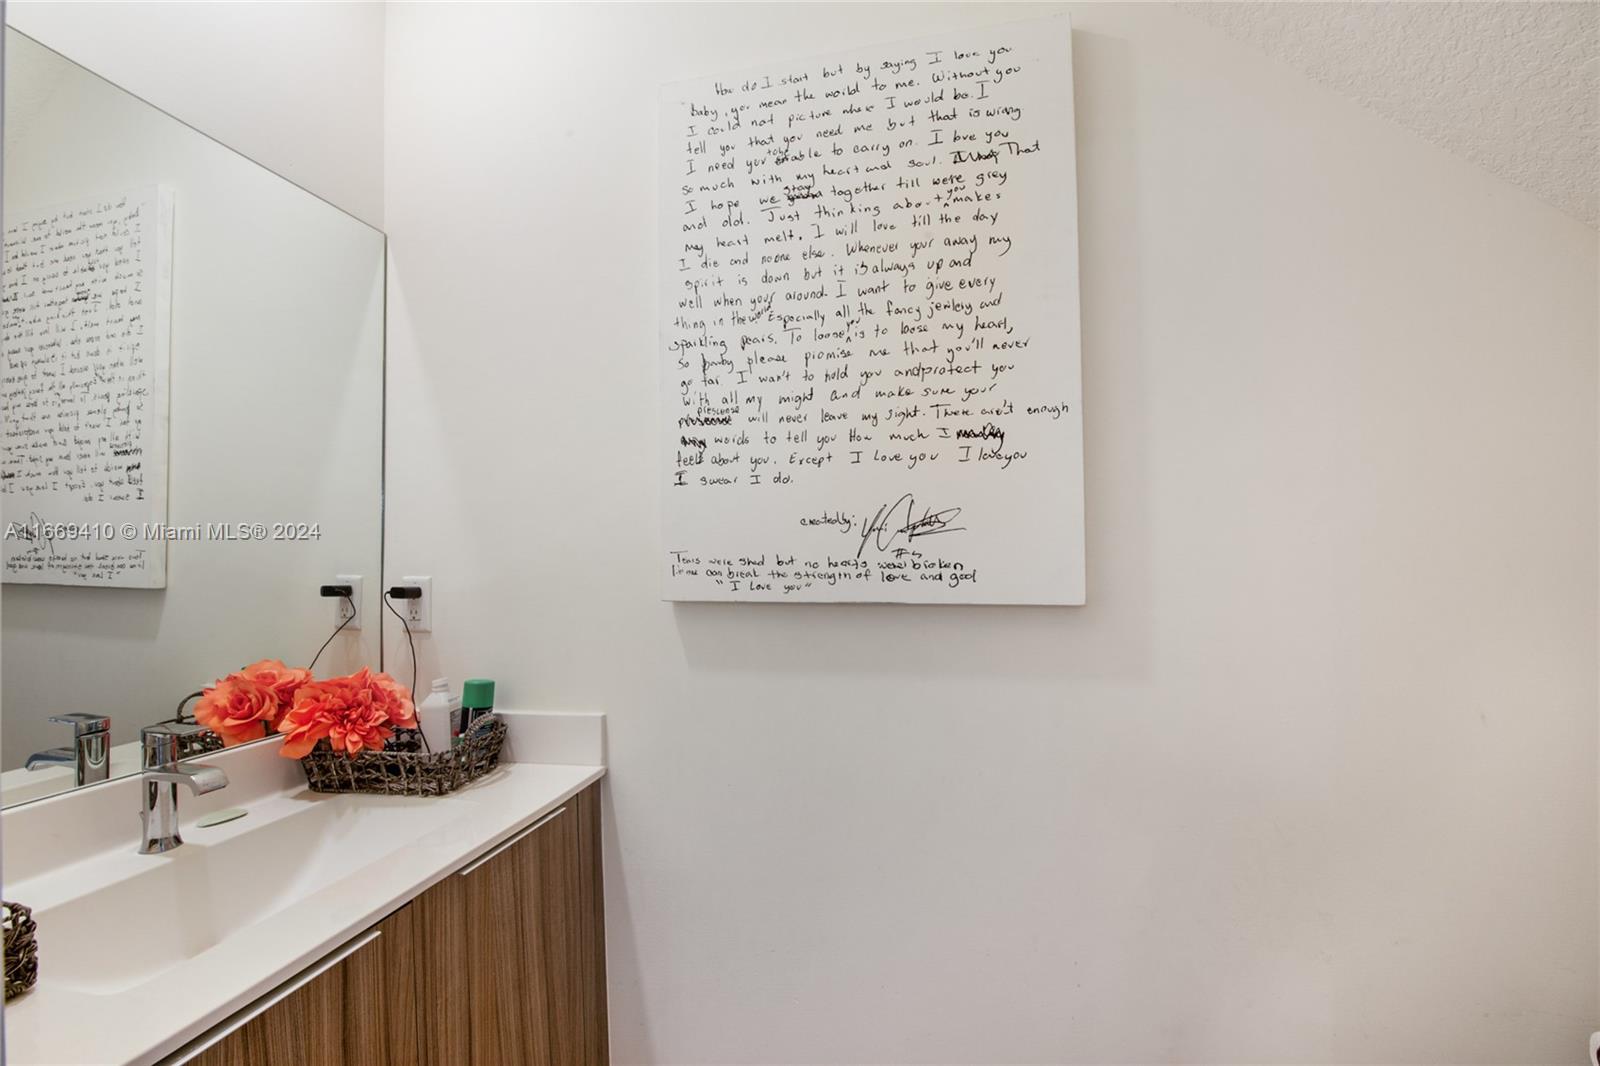 How do I start but by saying I love you
Baby, you mean the world to me. Without you
I could not picture where I would be. I
tell you that you need me but that is wrong.
I need you to be able to carry on. I love you
so much with my heart and soul. That
I hope we stay together till we're grey
and old. Just thinking about you makes
my heart melt. I will love till the day
I die and noone else. Whenever your away my
spirit is down but it is always up and
well when your around. I want to give every
thing in the world Especially all the fancy jewlery and
sparkling pears. To loose you is to loose my heart,
So baby please promise me that you'll never
go far. I wan't to hold you and protect you
with all my might and make sure your
prescense will never leave my sight. There aren't enough
words to tell you How much I
feel about you. Except I Love you I love you
I swear I do.
created by:
Tears were shed but no hearts were broken
can break the strength of love and god
"I Love you"
A11669410 © Miami MLS® 2024